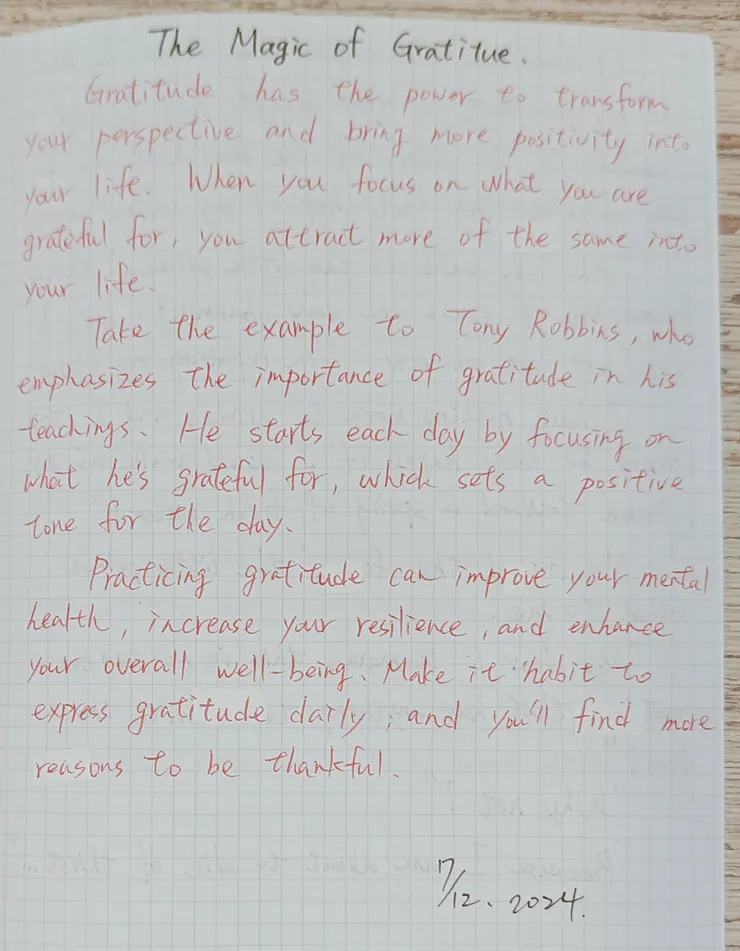 The Magic of Gratitue.
Gratitude has the power to transform
your perspective and bring more positivity into
your life. When you focus on what you are
grateful for, you attract more of the same into
your life.
Take the example to Tony Robbins, who
emphasizes the importance of gratitude in his
teachings. He starts each day by focusing on
what he's grateful for, which sets a positive
tone for the day.
Practicing gratitude can improve your mental
health, increase your resilience, and enhance
your overall well-being. Make it habit to
express gratitude daily, and you'll find more
reasons to be thankful.
17/12. 2024.